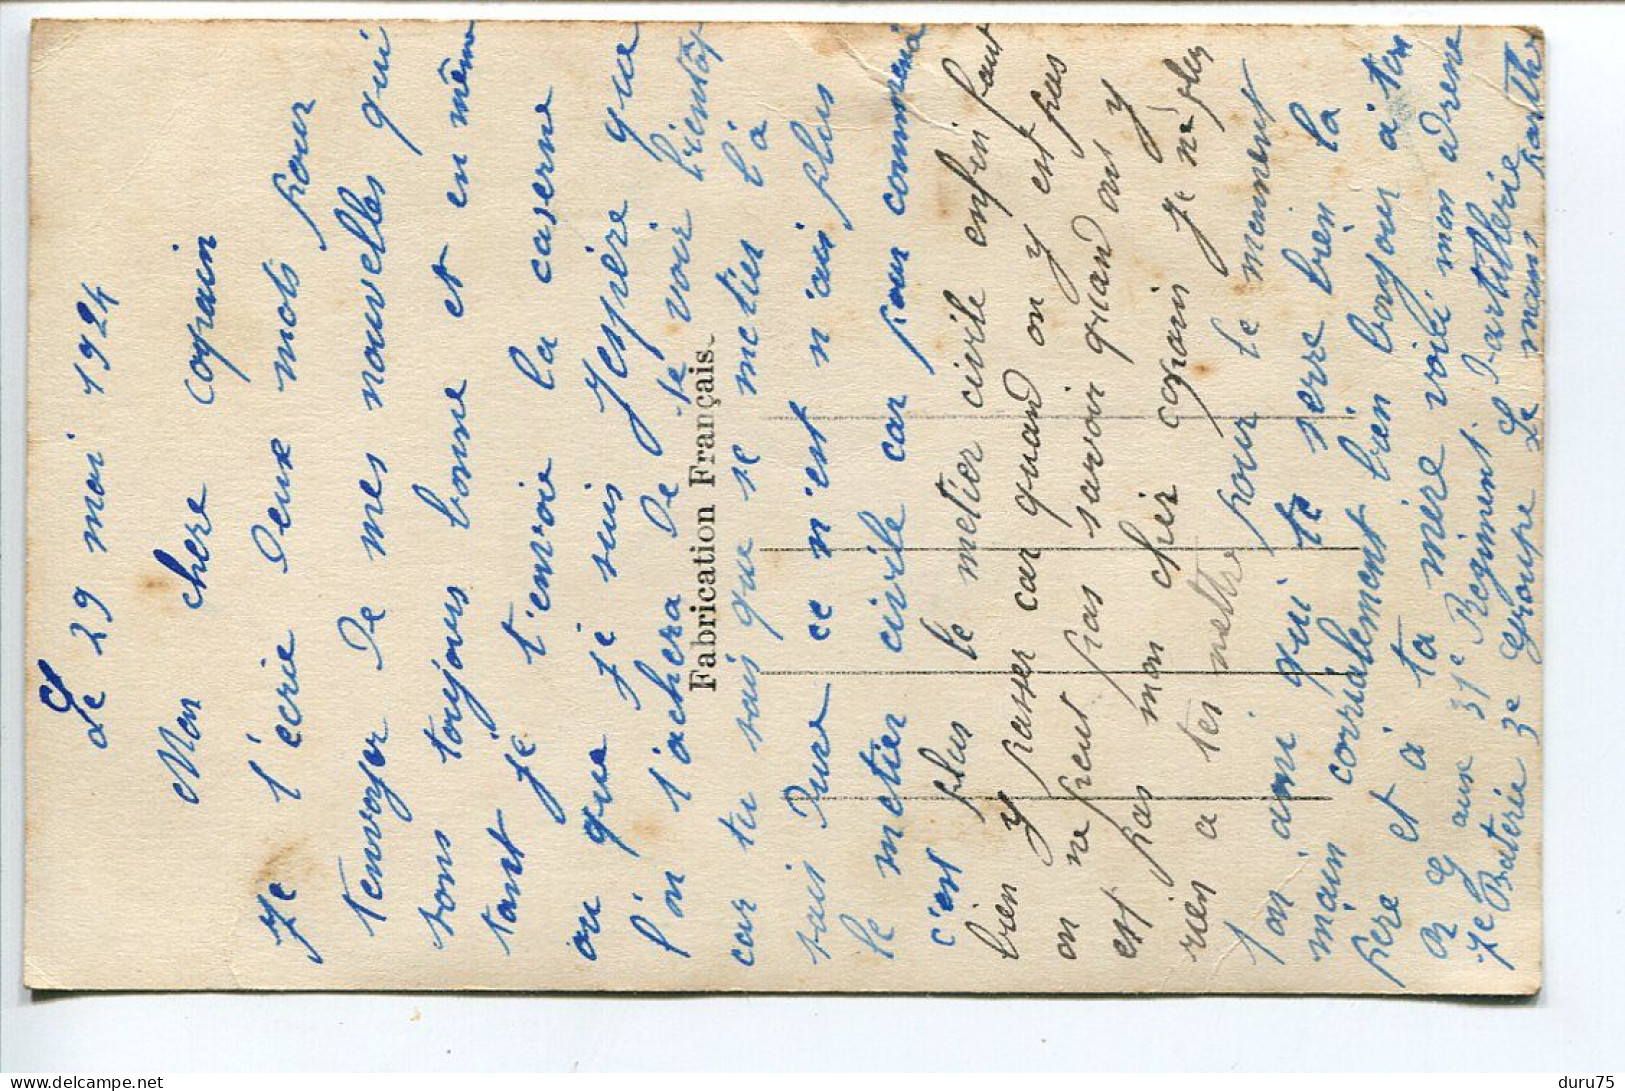 Le 29 mai 1924
Mon chere copain
Je t'écrie deux mots pour
tenvoyer de mes nouvelles qui
sons toujours bonne et en même
tant je t'envoie la caserne
ou que je suis J'espère que
l'on tachera de te voir bientôt
car tu sais que se metier là
sais dure ce n'est n'ais plus
le metier civile car pour commencé
c'est plus le metier civile enfin faut
bien y passer car quand on y est pas
on ne peut pas savoir quand ons y
est pas mon cher copain Je né plus
rien a tes mettre pour le momment
ton ami qui te serre bien la
main corrdialement bien bonjour a ton
pere et á ta mère voila mon adresse
R G aux 31e Regiment d'artillerie
7e Baterie 3e Groupe Le mans Sarthe
Fabrication Français.
delcampe.net
duru75